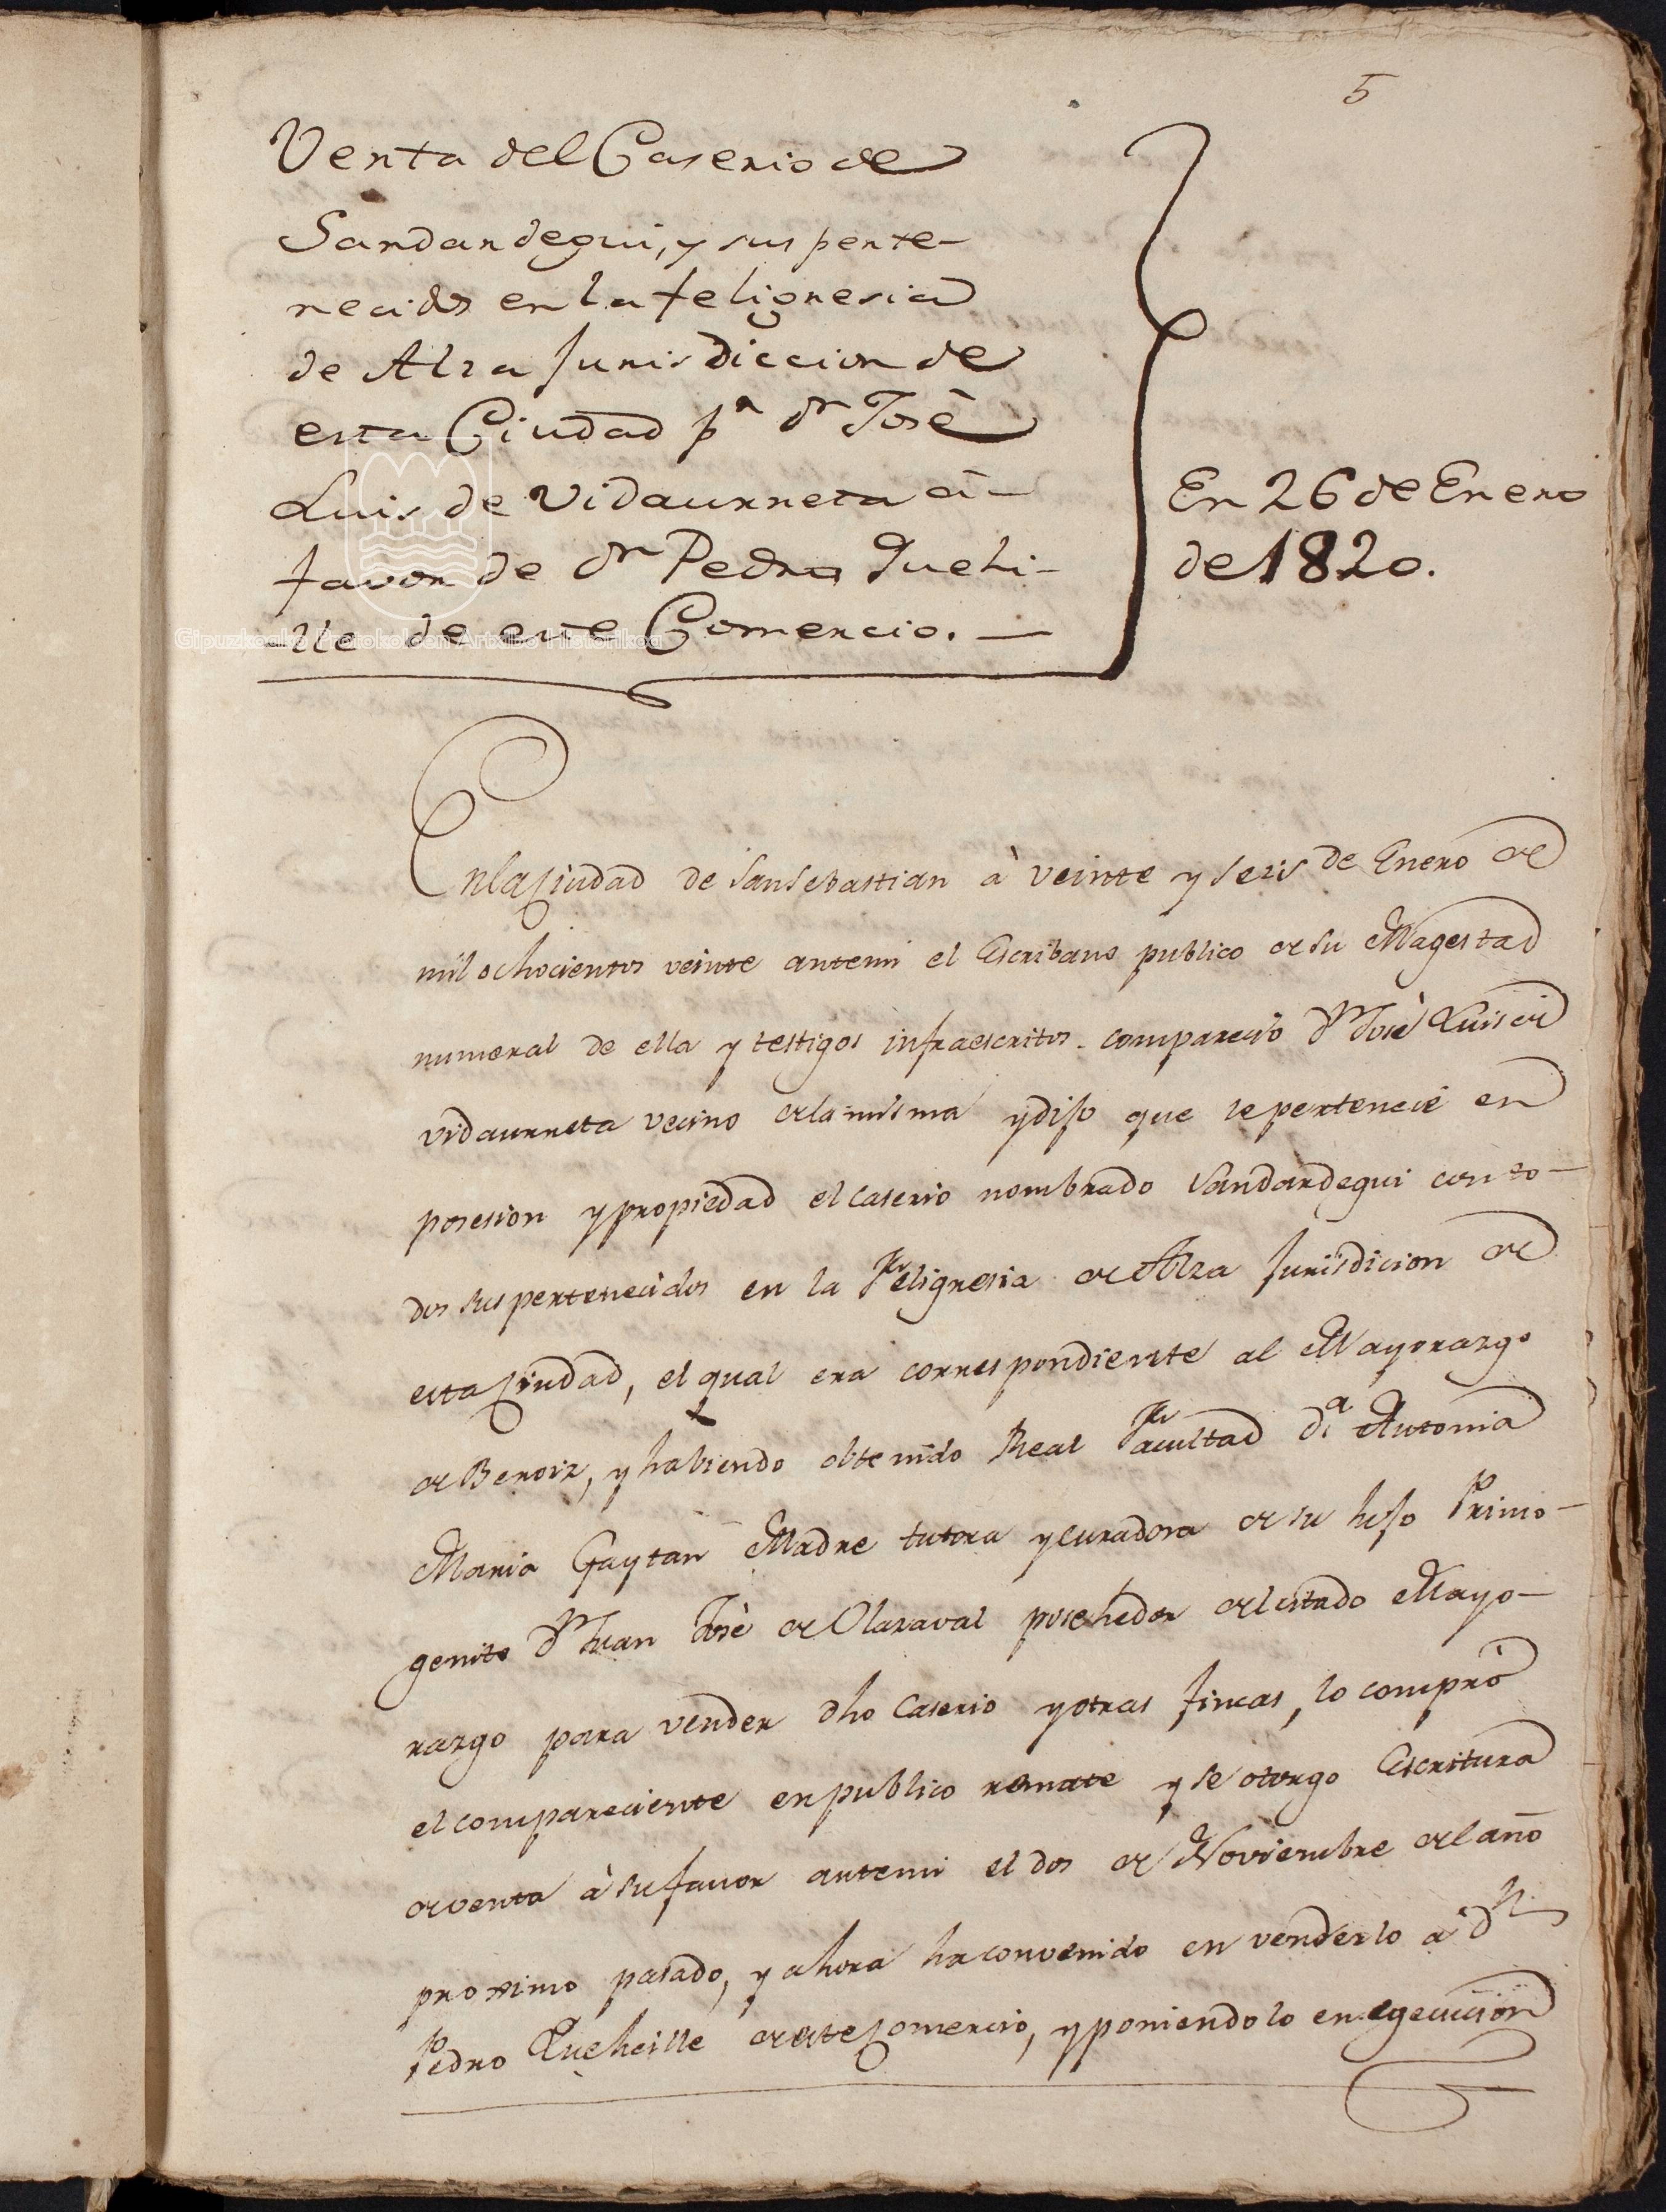 5
Venta del Caserio de
Sandardegui, y sus perte-
necidos en la feligresia
de Alza Jurisdiccion de
esta Ciudad pr. Dn José
Luis de Vidaurreta à
favor de Dn Pedro Quehi-
lle de este Comercio.
En 26 de Enero
de 1820.
En la Ciudad de San Sebastian à veinte y seis de Enero de
mil ochocientos veinte ante mi el Escribano publico de su Magestad
numeral de ella y testigos infraescritos comparecio Dn José Luis de
Vidaurreta vecino de la misma y dijo que le pertenecè en
posesion y propiedad el Caserio nombrado Sandardegui con to-
dos sus pertenecidos en la Feligresia de Alza Jurisdicion de
esta Ciudad, el qual era correspondiente al Mayorazgo
de Beroiz, y habiendo obtenido Real Facultad Da. Antonia
Maria Gaytan Madre tutora y curadora de su hijo Primo-
genito Dn Juan José de Olazaval posehedor del citado Mayo-
razgo para vender dho Caserio y otras fincas, lo comprò
el compareciente en publico remate y se otorgo Escritura
de venta à su favor ante mi el dos de Noviembre del año
proximo pasado, y ahora ha convenido en venderlo a Dn
Pedro Queheille de este Comercio, y poniendolo en egecucion
Gipuzkoako Protokoloen Artxibo Historikoa